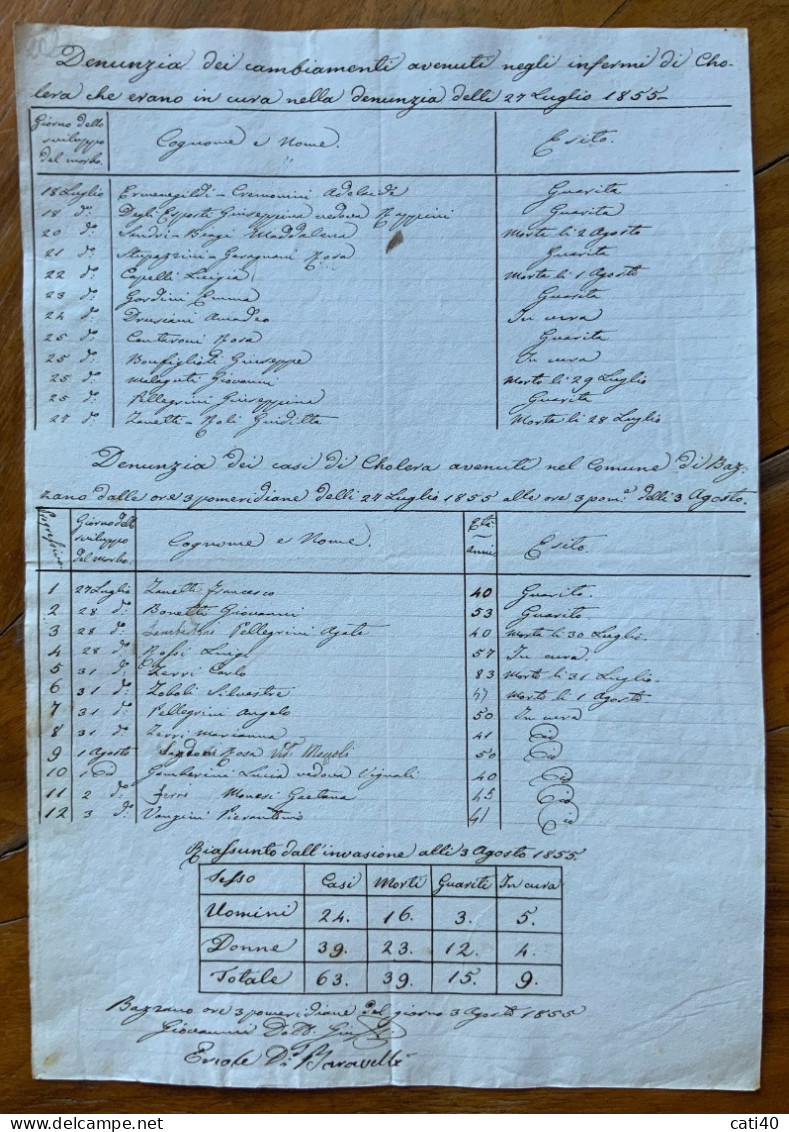 Denunzia dei cambiamenti avenuti negli infermi di Cho-
lera che erano in cura nella denunzia delli 27 Luglio 1855-
Giorno dello sviluppo del morbo. Cognome e Nome. Esito.
18 Luglio Ermenegildi-Cremonini Adelaide Guarita
18 do. Degli Esposti Giuseppina vedova Guarita
20 do. Maddalena Morta li 2 Agosto
21 do. Stupazzini-Garagnani Rosa Guarita
22 do. Capelli Luigia Morta li 1 Agosto
23 do. Gardini Emma Guarita
24 do. Drusiani Amadeo In cura
25 do. Rosa Guarita
25 do. Bonfiglioli Giuseppe In cura
25 do. Malaguti Giovanni Morto li 29 Luglio
25 do. Pellegrini Giuseppina Guarita
27 do. Zanetti-Roli Giuditta Morta li 28 Luglio
Denunzia dei casi di Cholera avenuti nel Comune di Baz-
zano dalle ore 3 pomeridiane delli 27 Luglio 1855 alle ore 3 pom.e delli 3 Agosto.
Giorno dello sviluppo del morbo Cognome e Nome. Età anni Esito.
1 27 Luglio Zanetti Francesco 40 Guarito.
2 28 do. Bonetti Giovanni 53 Guarito.
3 28 do. Pellegrini Agata 40 Morta li 30 Luglio.
4 28 do. Rossi Luigi 57 In cura.
5 31 do. Zerri Carlo 83 Morto li 31 Luglio.
6 31 do. Zoboli Silvestre 47 Morto li 1 Agosto.
7 31 do. Pellegrini Angelo 50 In cura
8 31 do. Zerri Marianna 41 id
9 1 Agosto Rosa Vda. 50 id
10 1 id Gamberini Lucia vedova Vignali 40 id
11 2 do. Ferri Monesi Gaetana 45 id
12 3 do. Vanzini Pierantonio 41 id
Riassunto dall'invasione alli 3 Agosto 1855.
Sesso Casi Morti Guariti In cura
Uomini 24. 16. 3. 5.
Donne 39. 23. 12. 4.
Totale 63. 39. 15. 9.
Bazzano ore 3 pomeridiane del giorno 3 Agosto 1855
Giovannini Dott.
Ercole Dr. Baravelli
cati40